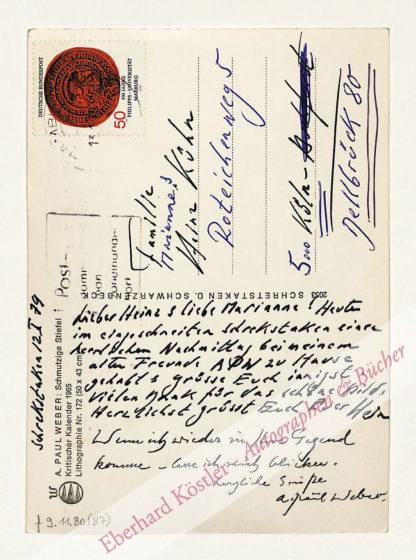 DEUTSCHE BUNDESPOST
450 JAHRE
PHILIPPS-UNIVERSITÄT
MARBURG
50
Familie
Marianne &
Heinz Kühn
Roteichenweg 5
5000 Köln-
Dellbrück 80
Post-
2059 SCHRETSTAKEN Ü. SCHWARZENBEK
A. PAUL WEBER: Schmutzige Stiefel
Kritischer Kalender 1965
Lithographie Nr. 172 (50 x 43 cm)
Schretstaken 12 I 79
Lieber Heinz & liebe Marianne! Heute
im eingeschneiten Schretstaken einen
herrlichen Nachmittag bei meinem
alten Freunde APW zu Hause
gehabt & Grüsse Euch innigst
Vielen Dank für das schöne
Herzlichst grüsst Euch Euer
Wenn ich wieder in Ihre Gegend
komme – lasse ich mich blicken.
herzliche Grüße
a. paul weber.
† 9.11.80 (87)
Eberhard Köstler Autographen & Bücher